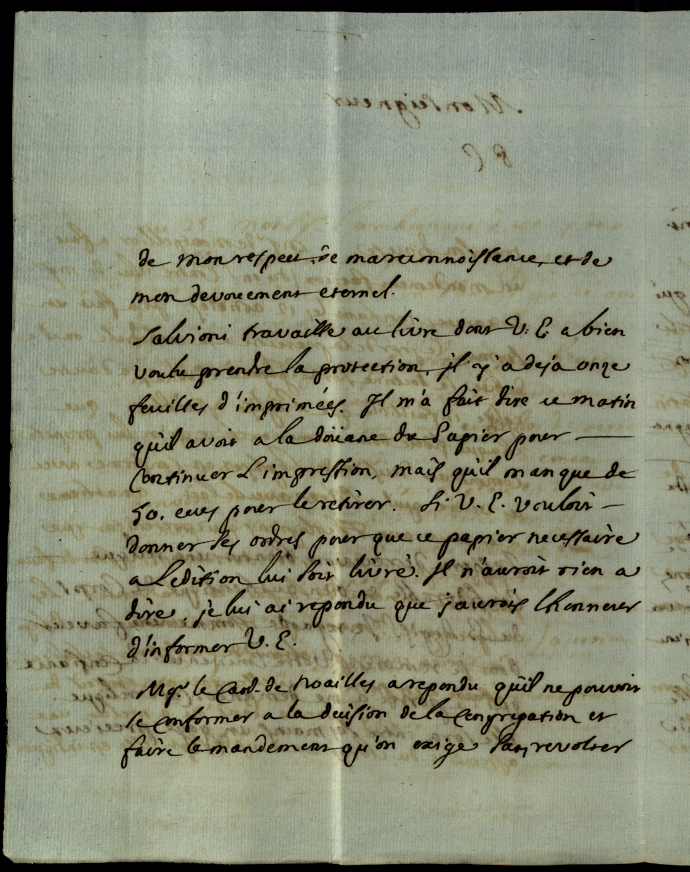 de mon respect, de ma reconnoissance, et de
mon devouement eternel.
Salvioni travaille au livre dont V. E. a bien
voulu prendre la protection, il y a deja onze
feuilles d'imprimées. Il m'a fait dire ce matin
qu'il avoit a la doüane du Papier pour —
Continuer L'impression, mais qu'il manque de
50. ecus pour le retirer. Si V. E. vouloit —
donner ses ordres pour que ce papier necessaire
a L'edition lui soit livré. Il n'auroit rien a
dire, je lui ai repondu que j'aurois l'honneur
d'informer V. E.
Mgr. le Card. de Noailles a repondu qu'il ne pouvoit
se conformer a la decision de la Congregation et
faire le mandement qu'on exige sans revolter